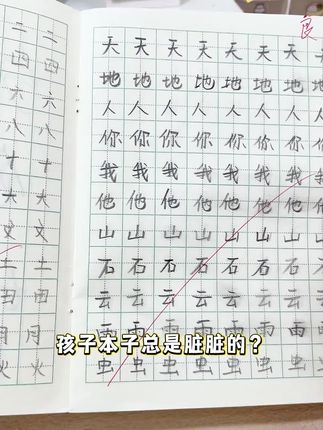 良
二 二
四 四
六 六
八 八
十 十
大 大
文 文
土 土
日 日
月 月
火 火
天 天 天 天 天 天 天
地 地 地 地 地 地 地
人 人 人 人 人 人 人
你 你 你 你 你 你 你
我 我 我 我 我 我 我
他 他 他 他 他 他 他
山 山 山 山 山 山 山
石 石 石 石 石 石 石
云 云 云 云 云 云 云
雨 雨 雨 雨 雨
孩子本子总是脏脏的？
虫 虫 虫 虫 虫 虫